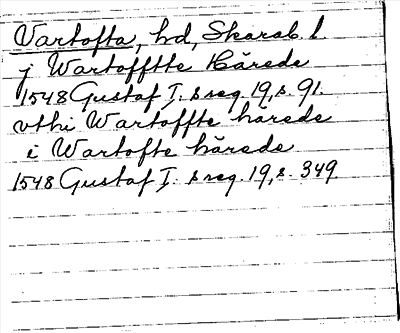 Vartofta, hd, Skarab. l.
j Wartofftte Härede
1548 Gustaf I. s reg. 19, s. 91.
vthi Wartoffte härede
i Wartofte härede
1548 Gustaf I. s reg. 19, s. 349.